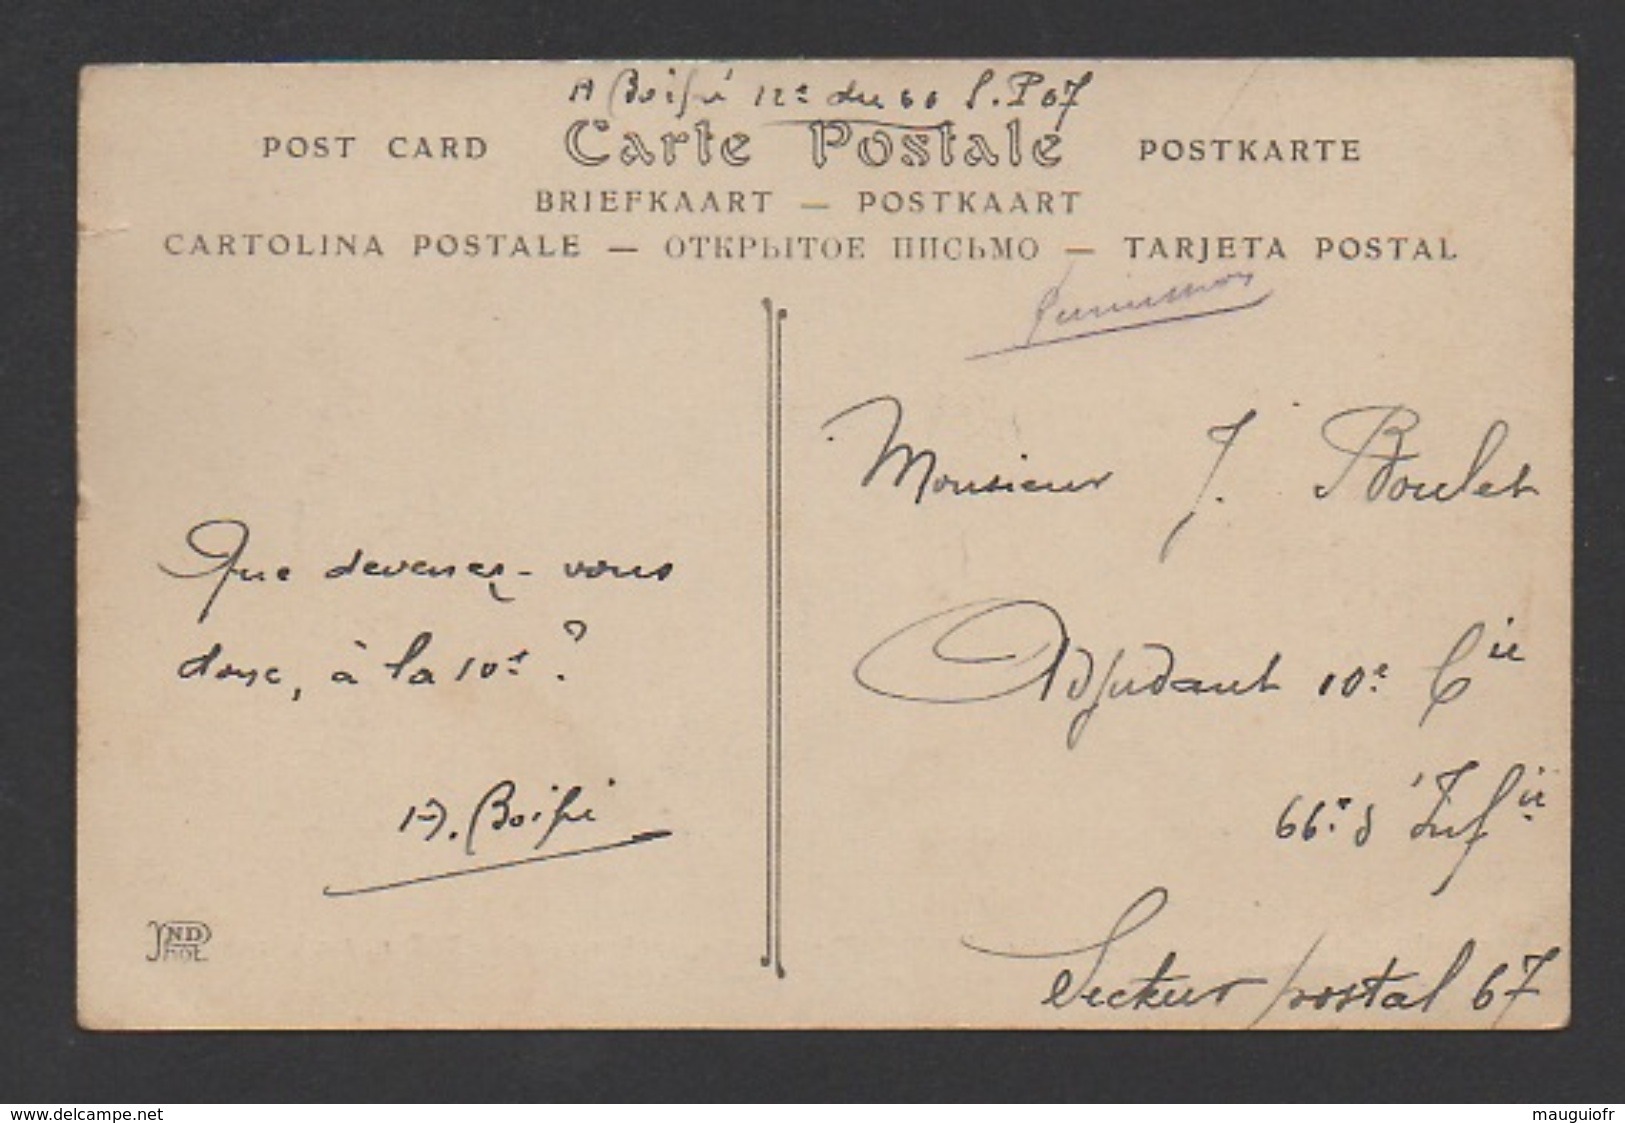 A Boifié 12e du 66 S.P 67
POST CARD Carte Postale POSTKARTE
BRIEFKAART — POSTKAART
CARTOLINA POSTALE — ОТКРЫТОЕ ПИСЬМО — TARJETA POSTAL
Monsieur J. Boulet
Que devenez-vous
donc, à la 10e ?
Adjudant 10e Cie
A. Boifié
66e d'Infie
ND Phot.
Secteur postal 67
www.delcampe.net
mauguiofr